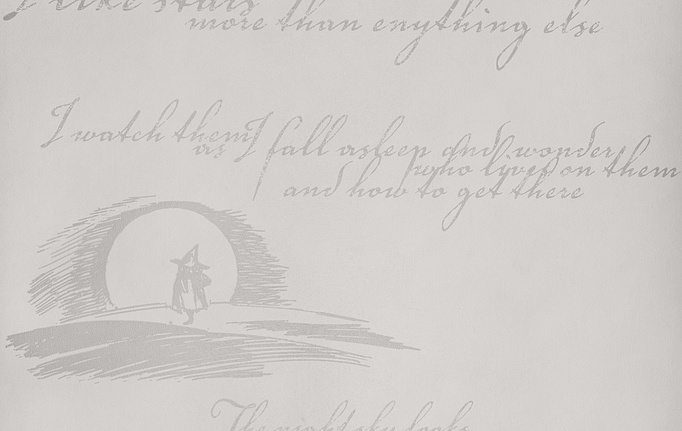 I like stars
more than anything else
I watch them
as I fall asleep and wonder
who lives on them
and how to get there
The night sky looks